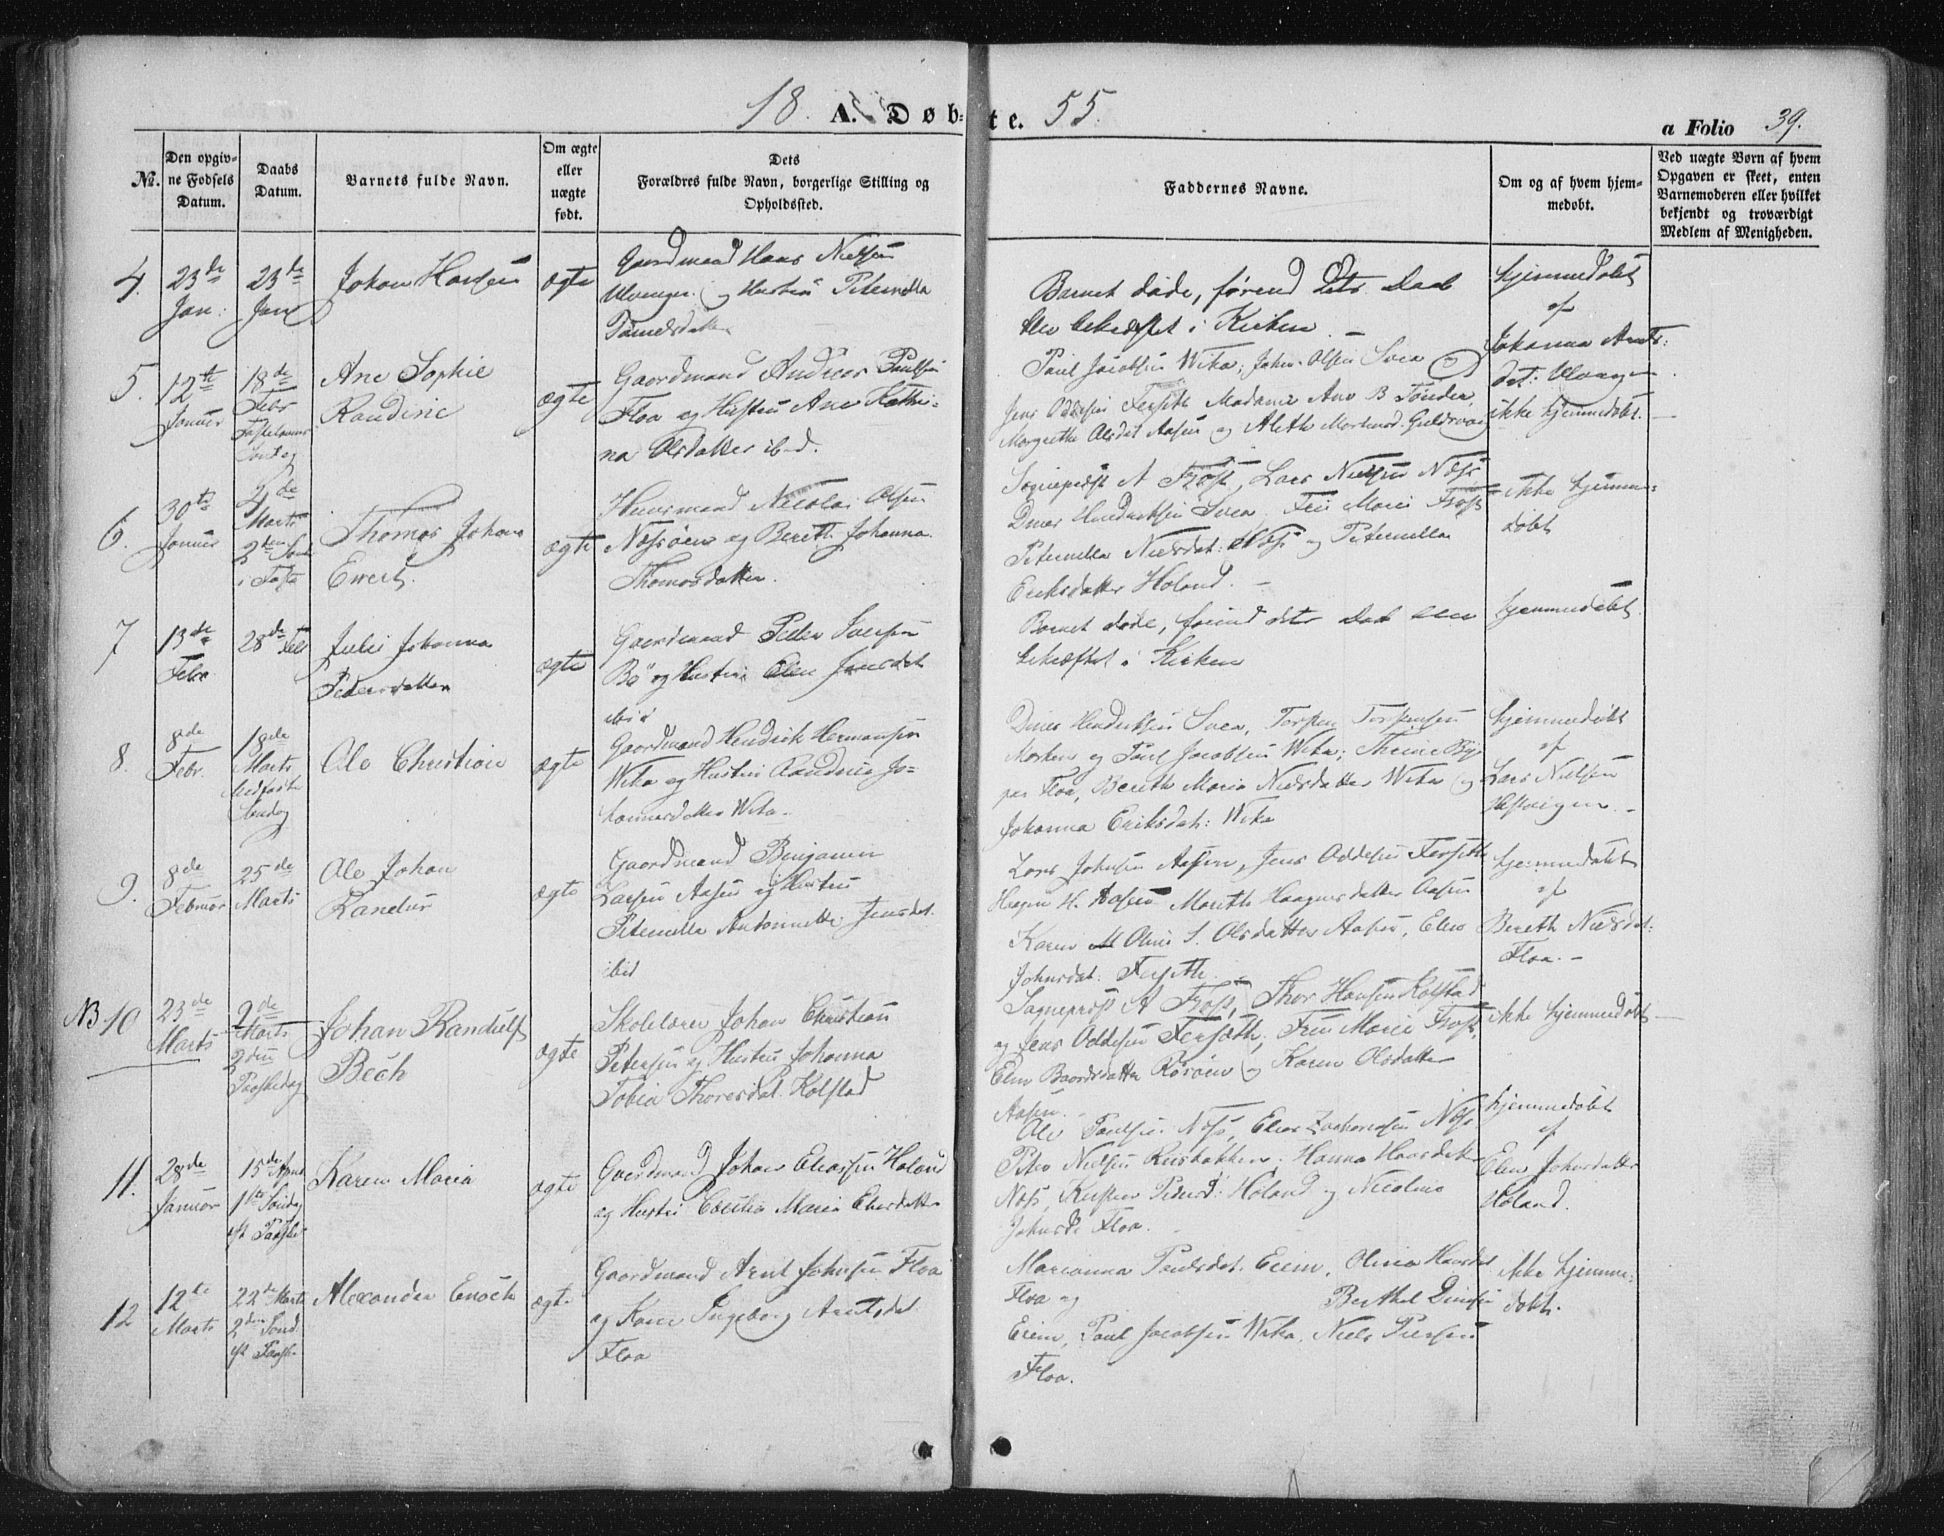 18 A. Døbte. 55.
a Folio 39.
No.
Den opgivne Fødsels Datum.
Daabs Datum.
Barnets fulde Navn.
Om ægte eller uægte født.
Dets
Forældres fulde Navn, borgerlige Stilling og
Opholdssted.
Faddernes Navne.
Om og af hvem hjemmedøbt.
Ved uægte Børn af hvem
Opgaven er skeet, enten
Barnemoderen eller hvilket
bekjendt og troværdigt
Medlem af Menigheden.
4.
23de
Jan:
23de
Jan
Johan Hansen
ægte
Gaardmand Hans Nielsen
og Hustru Peternella
Danielsdatter
Barnet døde, førend Dets Daab
blev bekræftet i Kirken.
hjemmedøbt
af
Johanna
5.
12te
Januer
18de
Febr
Fastelavns
Søndag
Ane Sophie
Randine
ægte
Gaardmand Andreas Paulsen
Floa og Hustru Ane Kathri-
na Olsdatter ibid.
Paul Jacobsen Wika, Johan Olsen
Jens Oddesen Fersæth Madame Ane B Tønder,
Margrethe Olsdat Aasen og Aleth
ikke hjemmedøbt.
6.
30te
Januer
4de
Marts
2den Sønd
i Faste
Thomas Johan
Ewert.
ægte
Huusmand Nicolai Olsen
Næsøien og Bereth Johanna
Thomasdatter.
Sognepræst A Frost, Lars Nielsen Næss
Hendriksen Frost
Peternella Nielsdat: Næss og Peternella
Eriksdatter Høland.
ikke hjemme-
døbt
7
13de
Febr
28de Feb
Julie Johanna
Pedersdatter
ægte
Gaardmand Peder
Bø og Hustru Elen Jensdat
ibid
Barnet døde, førend dets Daab blev
bekræftet i Kirken
hjemmedøbt.
8.
8de
Febr.
18de
Marts
Midfaste
Søndag
Ole Christian
ægte
Gaardmand Hendrik Hermansen
Wika og Hustru Randine Jo-
hannesdatter Wika.
Hendriksen Torsten Torstensen
og Paul Jacobsen Wika;
Floa, Bereth Maria Nielsdatter Wika og
Johanna Eriksdat: Wika
hjemmedøbt
af
Lars Nielsen
9.
8de
Februar
25de
Marts
Ole Johan
Randur
ægte
Gaardmand Benjamin
Larsen Aasen og Hustru
Peternelle Antonnette Jensdat.
ibid
Lars Johnsen Aasen, Jens Oddesen Fersæth
Haagen H. Aasen Mareth Haagensdatter Aasen
Karen M Oline S. Olsdatter Aasen, Elen
Johnsdat: Fersæth.
hjemmedøbt
af
Bereth Nielsdat:
Floa.
NB 10
23de
Marts
9de
Marts
2den
Paaskedag
Johan Randulf
Bech
ægte
Skolelærer Johan Christian
Petersen og Hustru Johanna
Tobia Thoresdat. Kolstad
Sognepræst A Frost, Thor Hansen Kolstad
og Jens Oddesen Fersæth, Marie Frost,
Elen Baardsdatter og Karen Olsdatter
Aasen.
ikke hjemmedøbt
11.
28de
Januar
15de April
1ste Søndag
eft Paaske
Karen Maria
ægte
Gaardmand Johan Eliassen Høland
og Hustru Cecilia Maria
Ole Paulsen Næss, Elias Zachariasen Næss
Peter Nielsen Hanna Hansdatter
Næss, Pedersd: Høland og Nicoline
Floa.
hjemmedøbt
af
Elen Johnsdatter
Høland.
12
12te
Marts
22de
2den Sønd.
eft Paaske
Alexander Enoch
ægte
Gaardmand Arnt Johnsen Floa
og Kone Ingeborg Arntsdat.
Floa
Marianna Eiem, Olina Hansdat
Floa og Berthel
Eiem, Paul Jacobsen Wika, Niels
Floa.
ikke hjemme-
døbt.